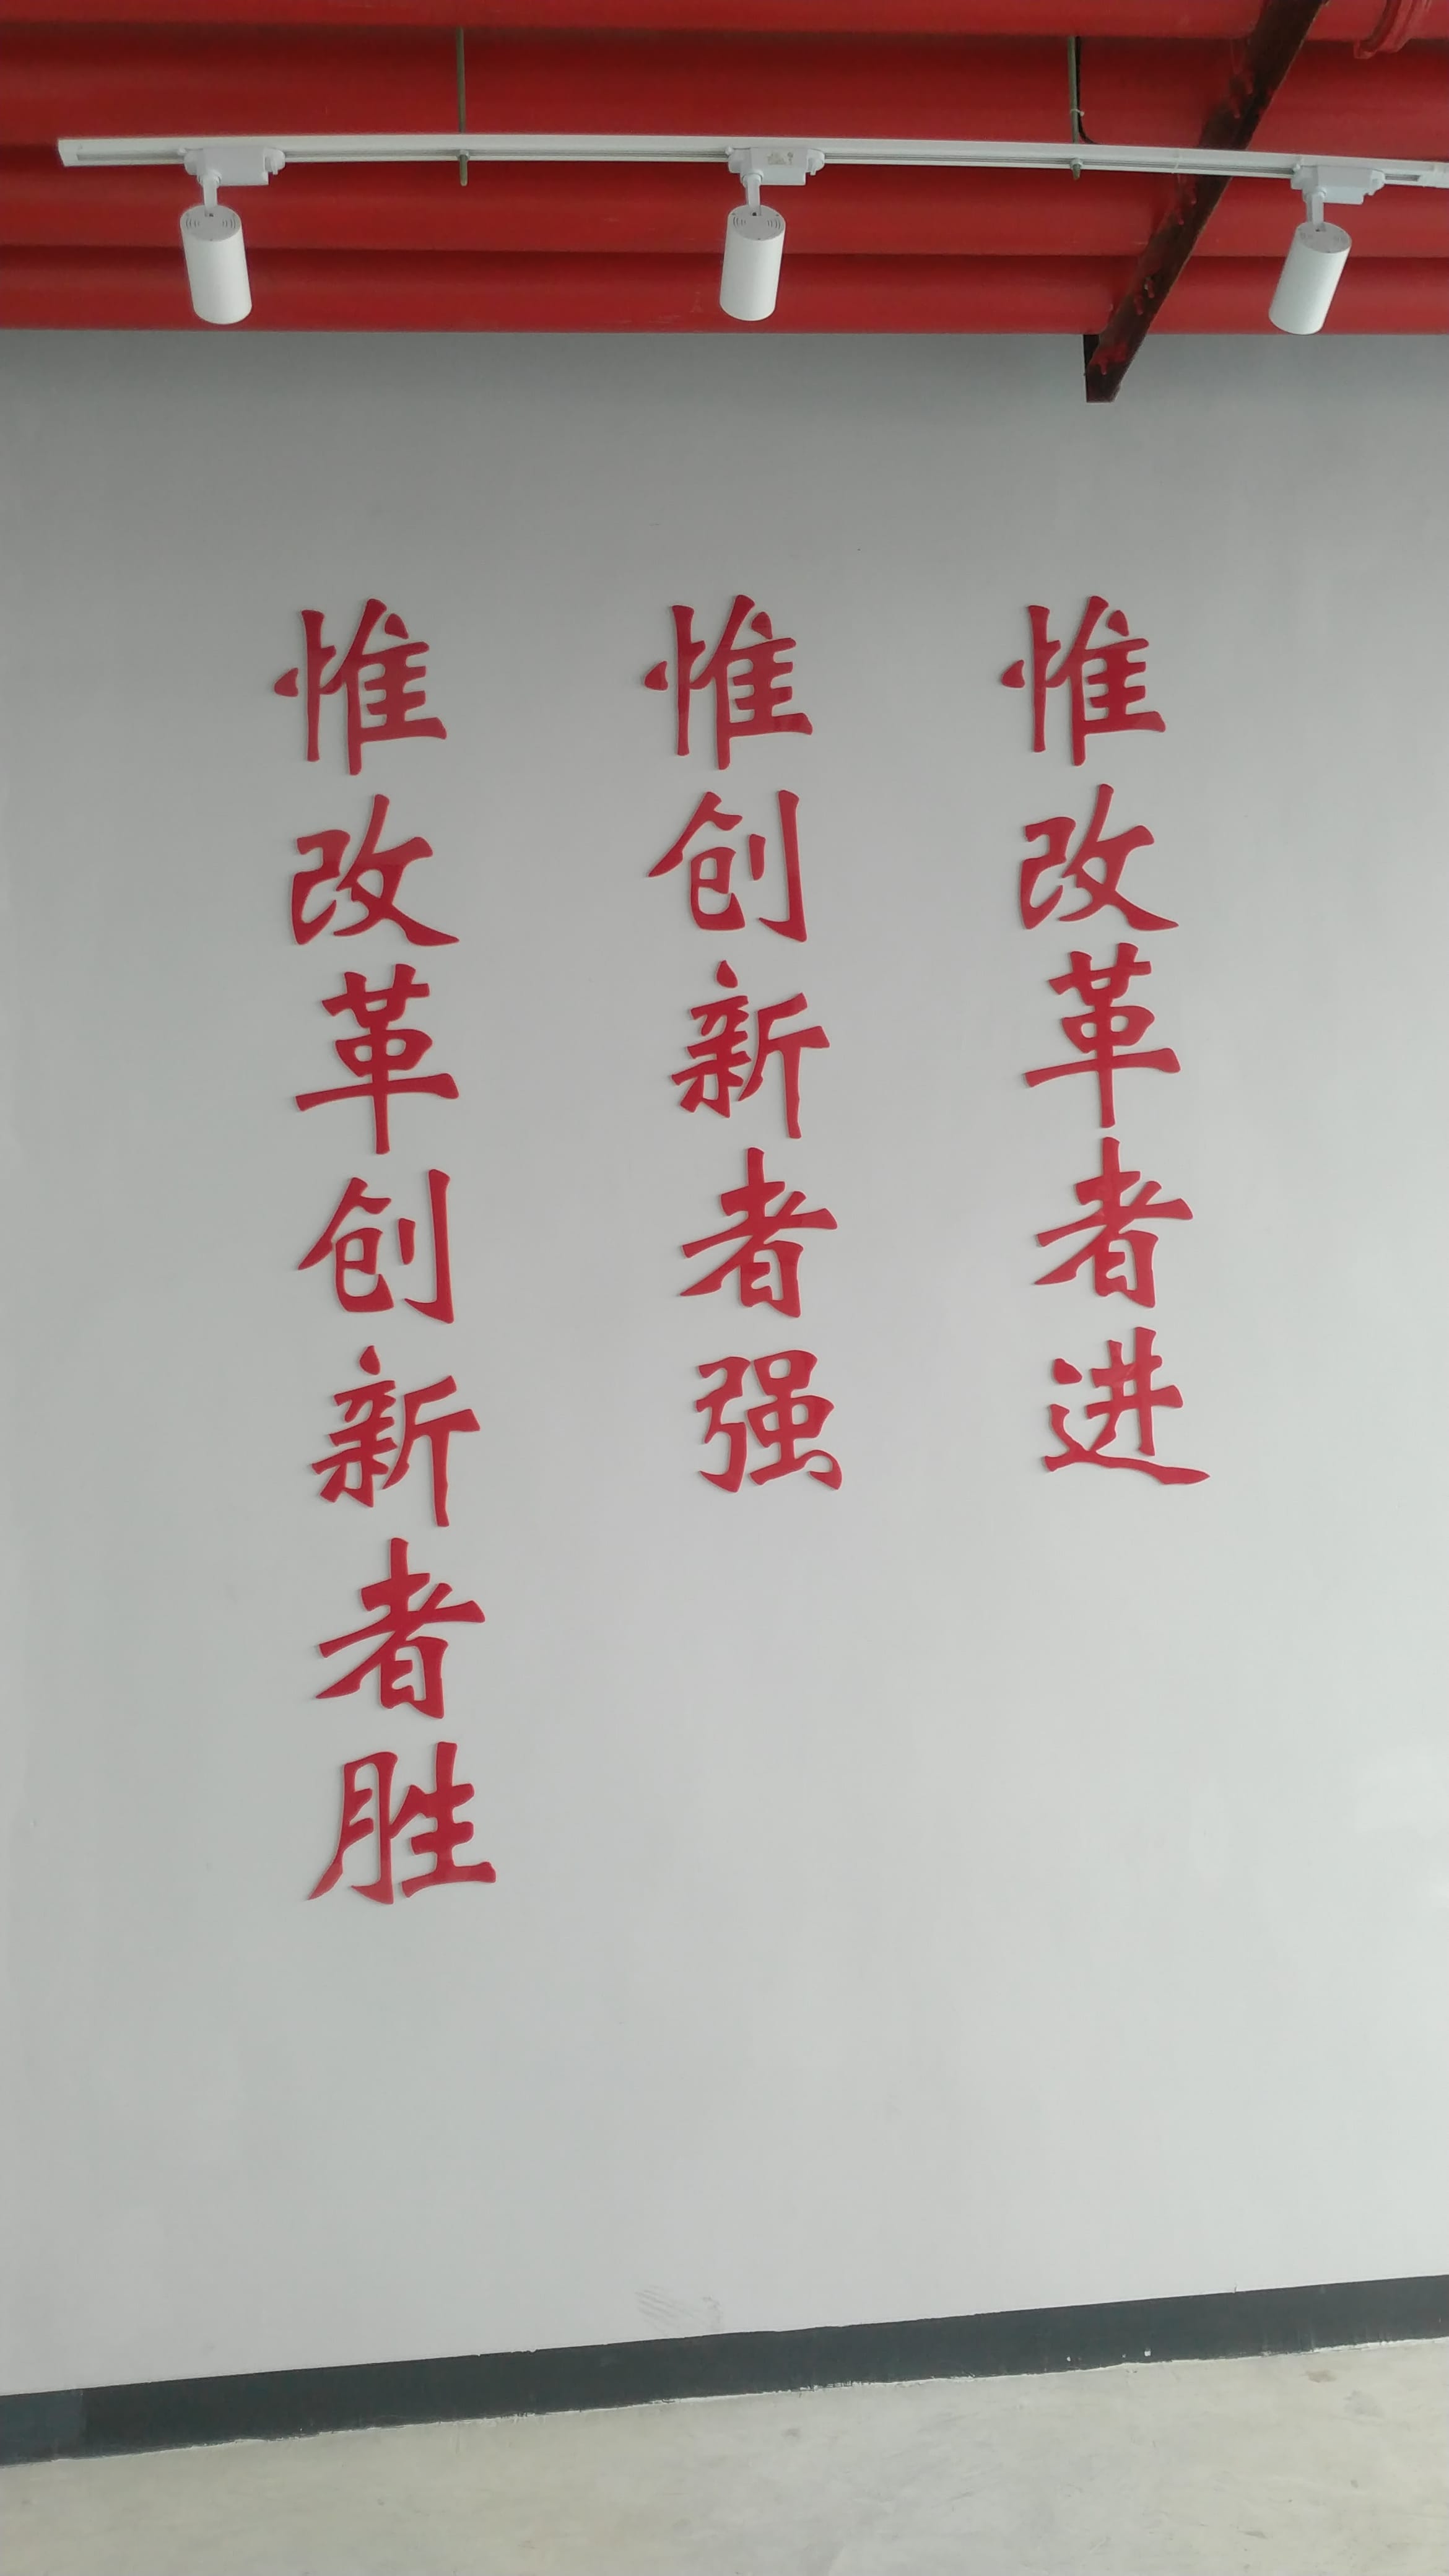 惟改革者进
惟创新者强
惟改革创新者胜